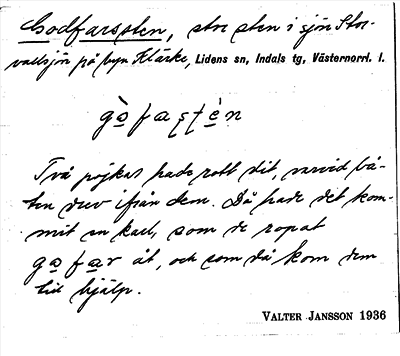 Godfarsten, stor sten i sjön Stor-
vallsjön på byn Klärke, Lidens sn, Indals tg, Västernorrl. l.
gò̱fa̱ștè̱n
Två pojkar hade rott dit, varvid bå-
ten drev ifrån dem. Då hade det kom-
mit en karl, som de ropat
go̱fa̱r åt, och som då kom dem
till hjälp.
VALTER JANSSON 1936